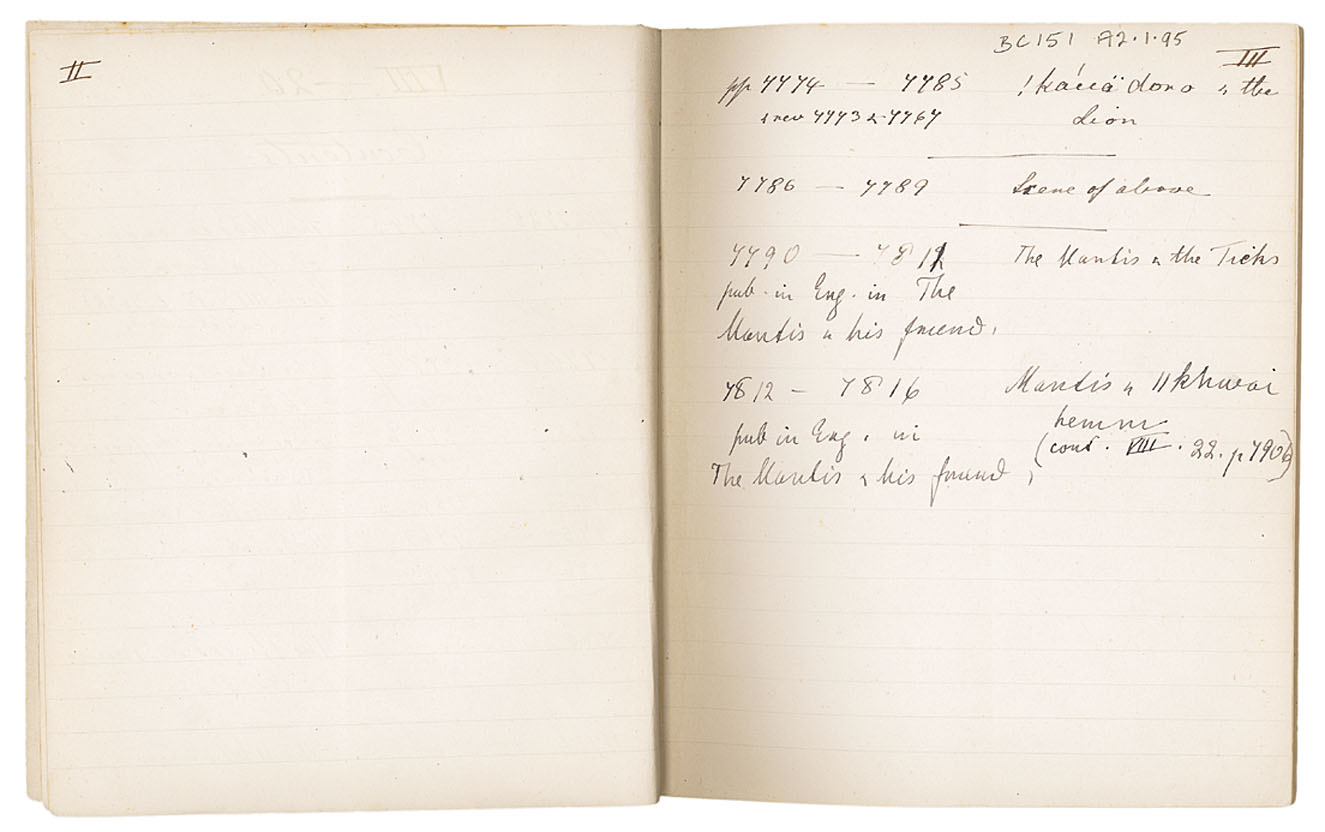 II
BC151 A2.1.95
III
pp 7774 — 7785 !káuä doro & the
& rev 7773 & 7767 Lion
7786 — 7789 Scene of above
7790 — 7812 The Mantis & the Ticks
pub. in Eng. in The
Mantis & his friend.
7812 — 7816 Mantis & ||khwai
pub in Eng. in hemm
(cont. VIII. 22. p 7906)
The Mantis & his friend,